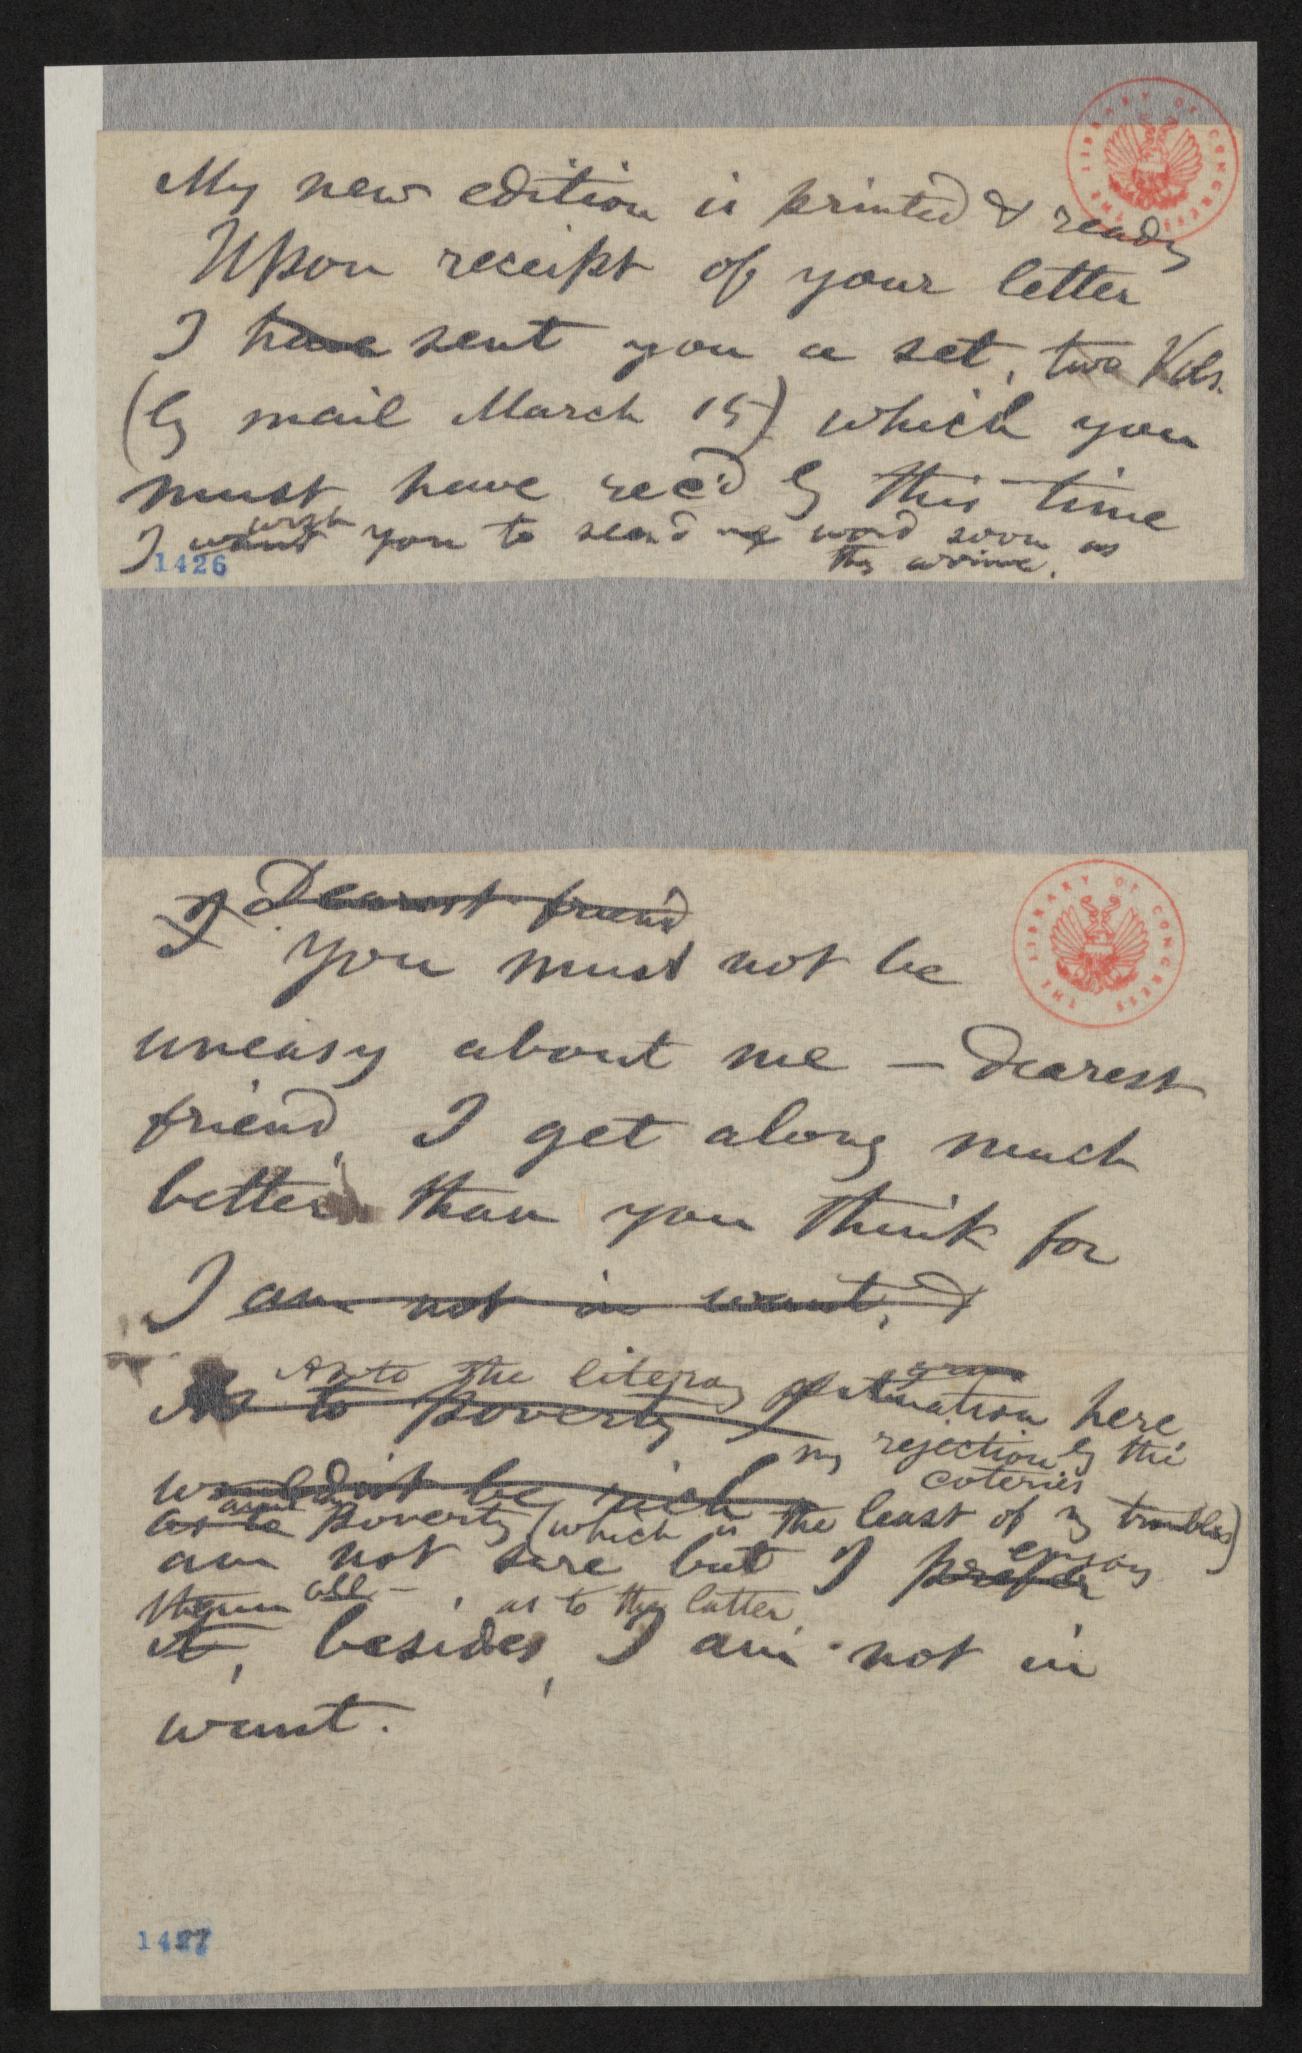 THE LIBRARY OF CONGRESS
My new edition is printed & ready
Upon receipt of your letter
I have sent you a set, two Vols.
(by mail March 15) which you
must have rec'd by this time
wish
I want you to send me word soon as
they arrive.
1426
THE LIBRARY OF CONGRESS
I Dearest friend
You must not be
uneasy about me — Dearest
friend, I get along much
better than you think for
I am not in want, &
As to the literary situation here
As to poverty I
my rejection by the
coteries
wouldn't be rich
as to poverty (which is the least of my troubles)
am not sure but I prefer
enjoy
them all — , as to the latter,
it, besides, I am not in
want.
1427